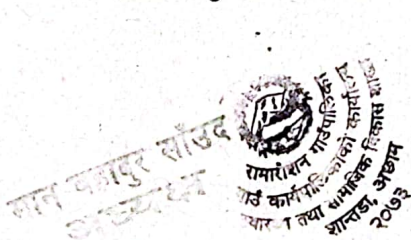 बहादुर साँउद
रामारोशन गाउँपालिका
गाउँ कार्यपालिकाको कार्यालय
तथा सामाजिक विकास शाखा
शान्तडा, अछाम
२०७३